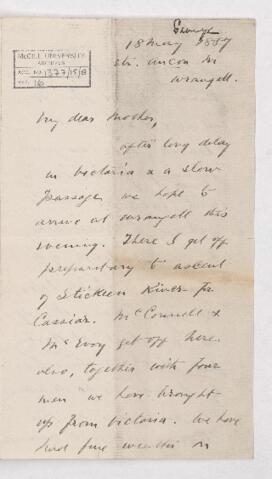 George
18 May 1887
Str. Ancon Nr
Wrangell.
McGILL UNIVERSITY
ARCHIVES
ACC. NO. 1377/15/8
REF. 16
My dear Mother,
after long delay
in Victoria & a slow
passage we hope to
arrive at Wrangell this
evening. There I get off
preparatory to ascent
of Stickeen River for
Cassiar. McConnell &
McEvoy get off here
also, together with four
men we have brought
up from Victoria. We have
had fine weather on